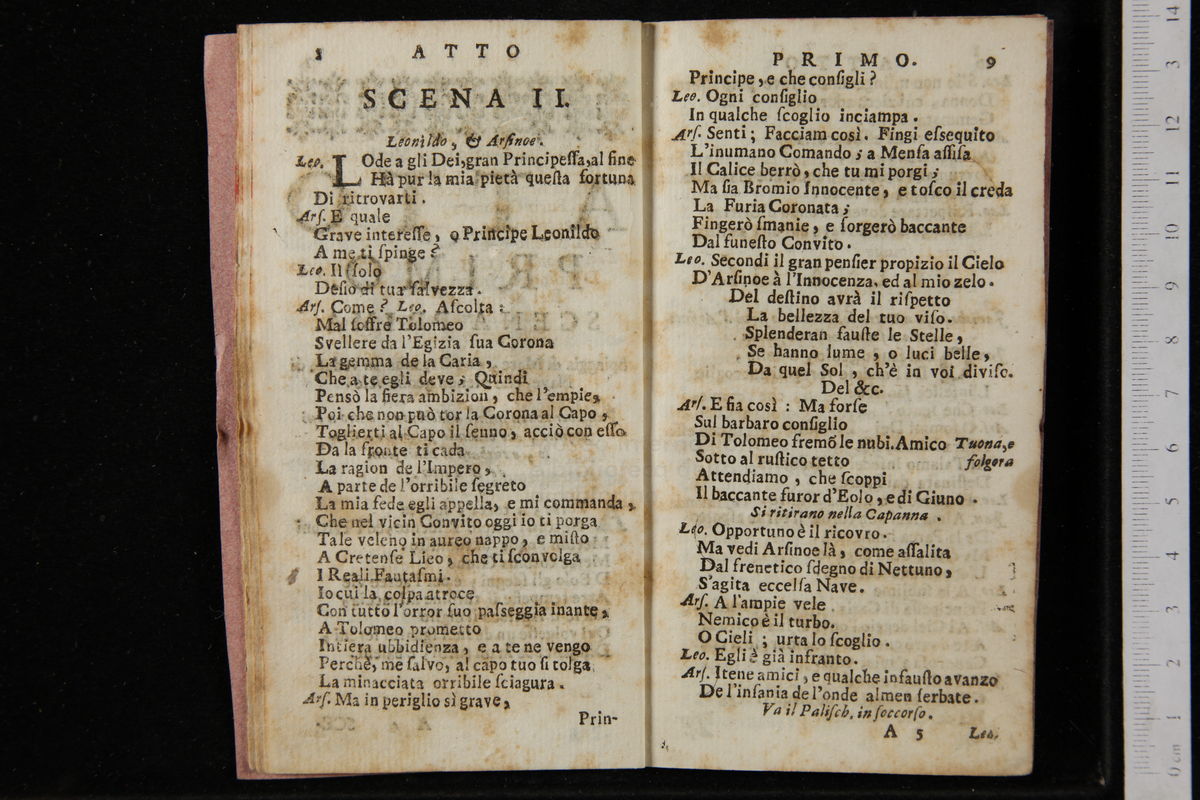 8 ATTO
SCENA II.
Leonildo, & Arsinoe.
Leo. LOde a gli Dei, gran Principeſſa, al fine
Hà pur la mia pietà queſta fortuna
Di ritrovarti.
Arſ. E quale
Grave intereſſe, o Principe Leonildo
A me ti ſpinge?
Leo. Il ſolo
Deſio di tua ſalvezza.
Arſ. Come? Leo. Aſcolta:
Mal ſoffre Tolomeo
Svellere da l'Egizia ſua Corona
La gemma de la Caria,
Che a te egli deve; Quindi
Pensò la fiera ambizion, che l'empie,
Poi che non può tor la Corona al Capo,
Toglierti al Capo il ſenno, acciò con eſſo
Da la fronte ti cada
La ragion de l'Impero,
A parte de l'orribile ſegreto
La mia fede egli appella, e mi commanda,
Che nel vicin Convito oggi io ti porga
Tale veleno in aureo nappo, e miſto
A Cretenſe Lieo, che ti ſconvolga
I Reali Fantaſmi.
Io cui la colpa atroce
Con tutto l'orror ſuo paſseggia inante,
A Tolomeo prometto
Intiera ubbidienza, e a te ne vengo
Perchè, me ſalvo, al capo tuo ſi tolga
La minacciata orribile ſciagura.
Arſ. Ma in periglio sì grave,
Prin-
PRIMO. 9
Principe, e che conſigli?
Leo. Ogni conſiglio
In qualche ſcoglio inciampa.
Arſ. Senti; Facciam così. Fingi eſsequito
L'inumano Comando; a Menſa aſſiſa
Il Calice berrò, che tu mi porgi;
Ma ſia Bromio Innocente, e toſco il creda
La Furia Coronata;
Fingerò ſmanie, e ſorgerò baccante
Dal funeſto Convito.
Leo. Secondi il gran penſier propizio il Cielo
D'Arſinoe à l'Innocenza, ed al mio zelo.
Del deſtino avrà il riſpetto
La bellezza del tuo viſo.
Splenderan fauſte le Stelle,
Se hanno lume, o luci belle,
Da quel Sol, ch'è in voi diviſo.
Del &c.
Arſ. E ſia così: Ma forſe
Sul barbaro conſiglio
Di Tolomeo fremõ le nubi. Amico Tuona, e
Sotto al ruſtico tetto folgora
Attendiamo, che ſcoppi
Il baccante furor d'Eolo, e di Giuno.
Si ritirano nella Capanna.
Leo. Opportuno è il ricovro.
Ma vedi Arſinoe là, come aſſalita
Dal frenetico ſdegno di Nettuno,
S'agita eccelſa Nave.
Arſ. A l'ampie vele
Nemico è il turbo.
O Cieli; urta lo ſcoglio.
Leo. Egli è già infranto.
Arſ. Itene amici, e qualche infauſto avanzo
De l'inſania de l'onde almen ſerbate.
Va il Paliſch. in ſoccorſo.
A 5 Leo.
0 cm 1 2 3 4 5 6 7 8 9 10 11 12 3 14